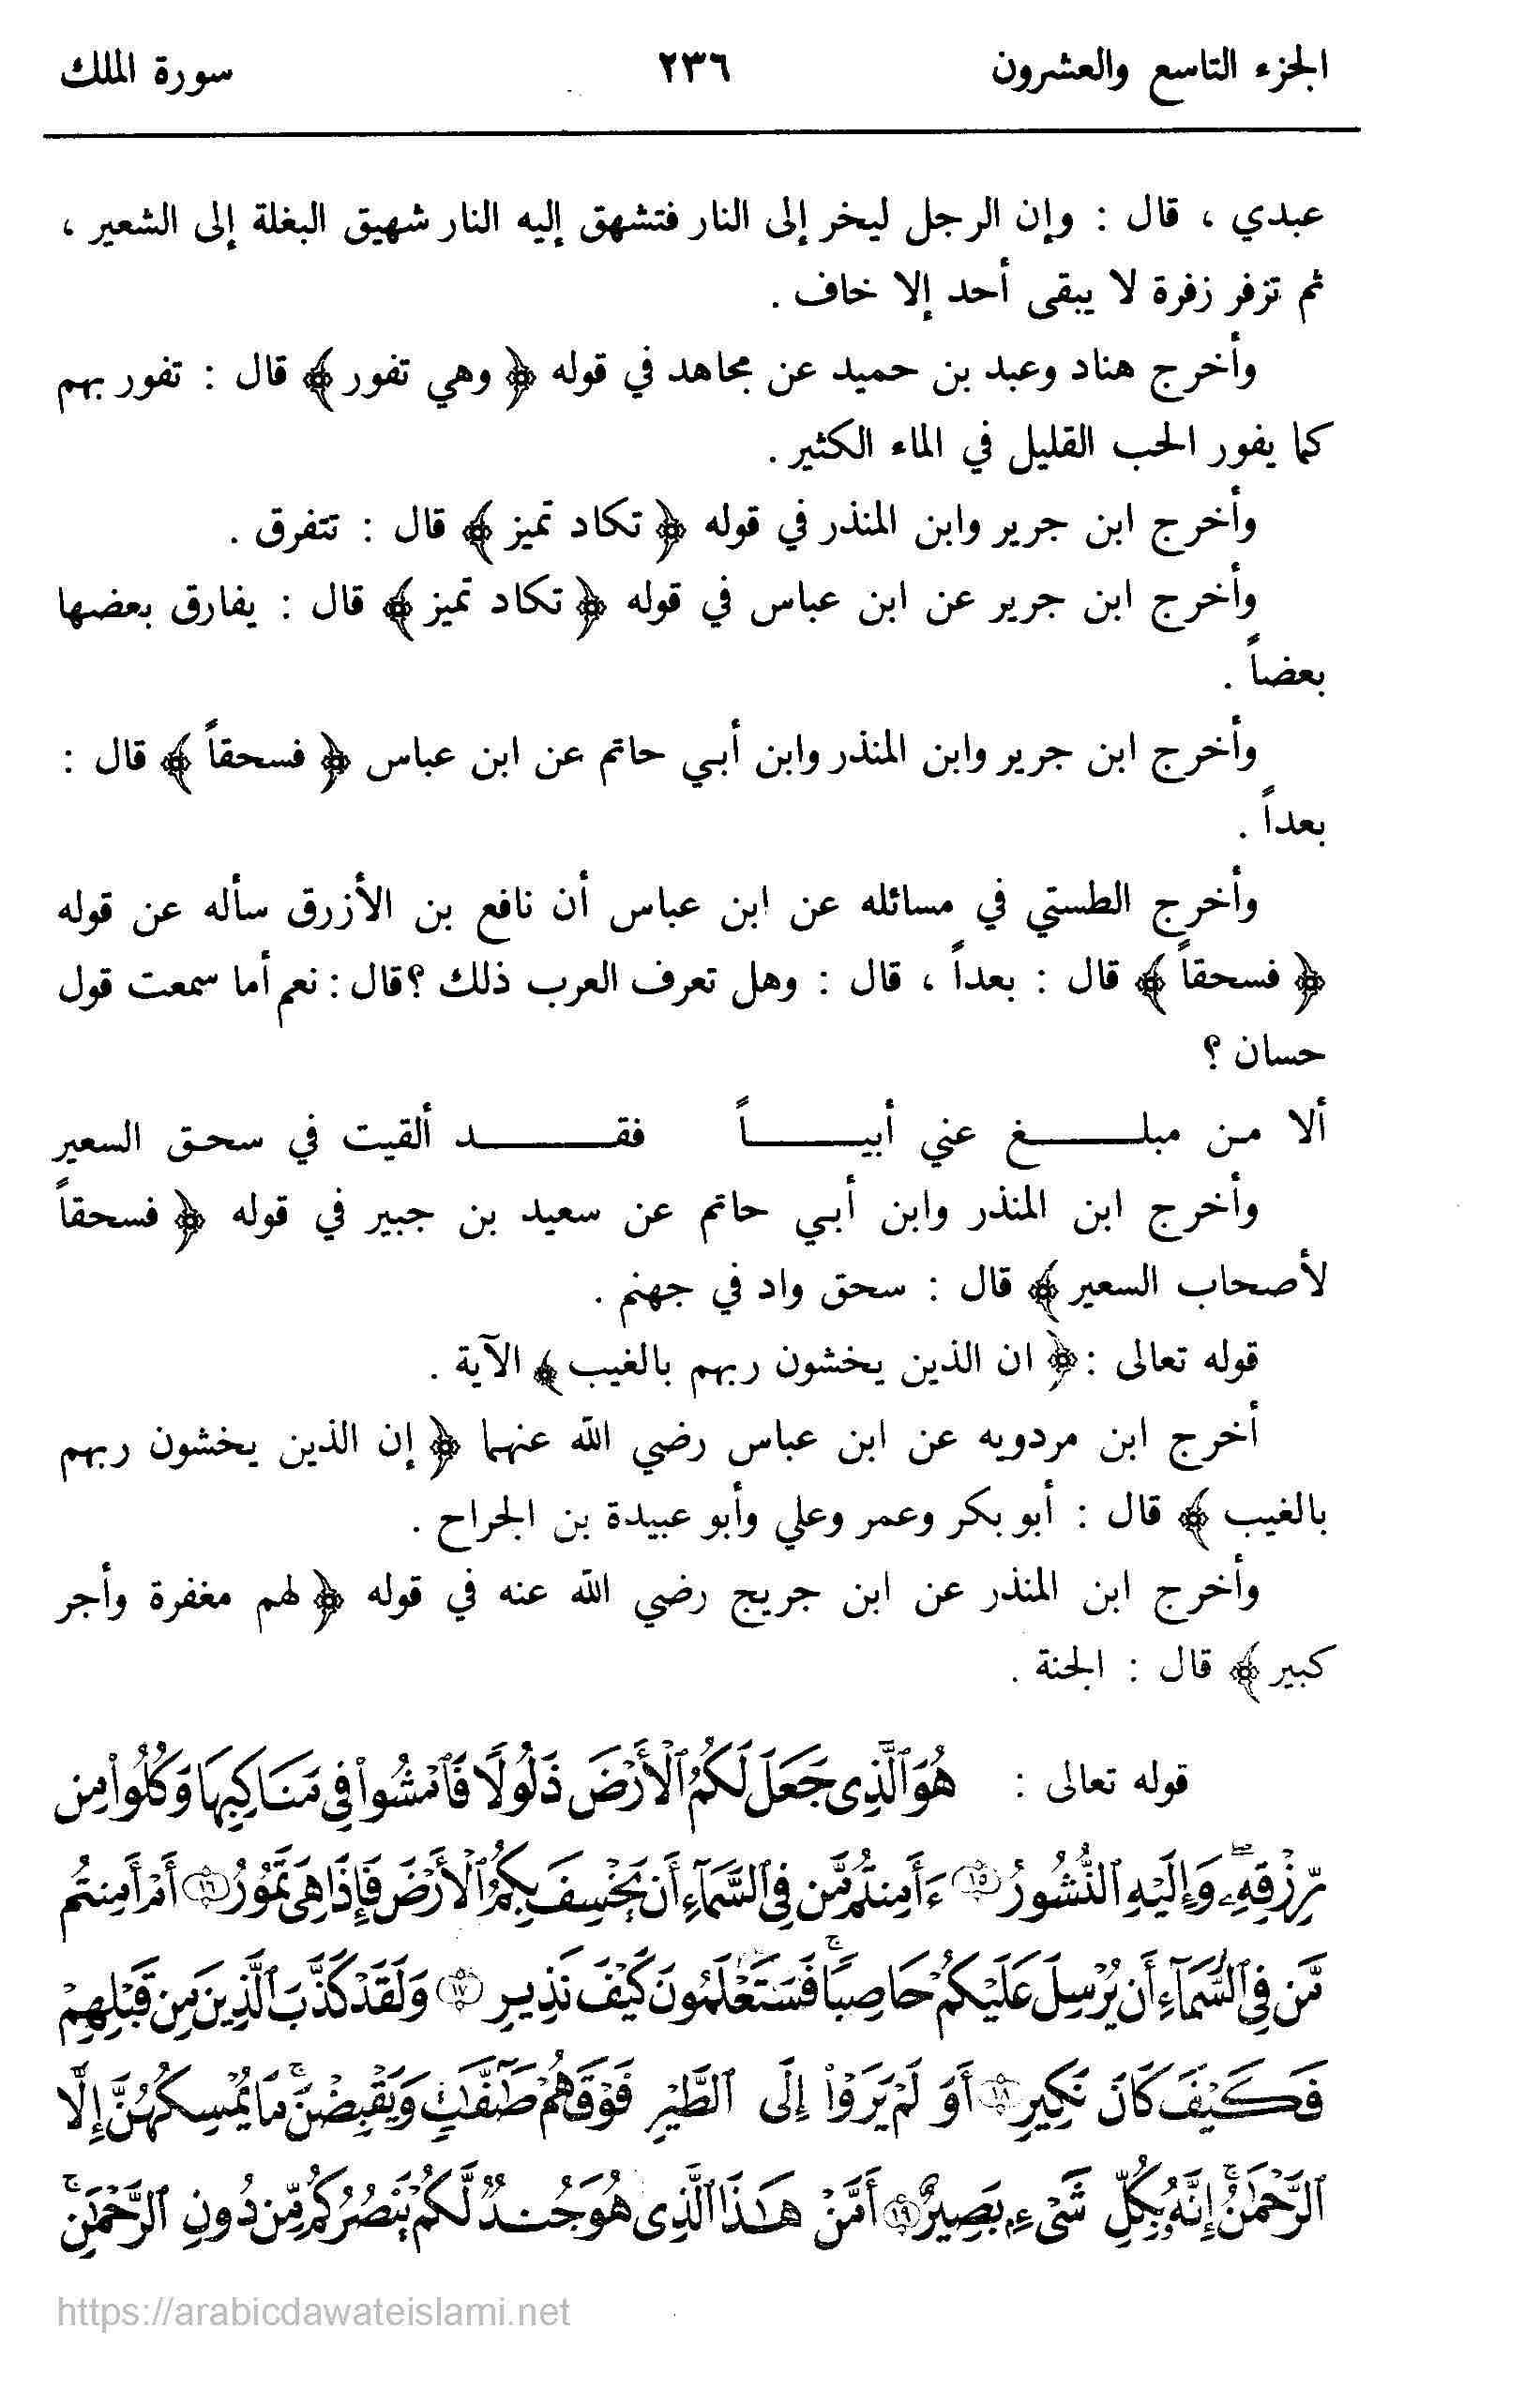 الجزء التاسع والعشرون ٢٣٦ سورة الملك
عبدي ، قال : وإن الرجل ليخر إلى النار فتشهق إليه النار شهيق البغلة إلى الشعير ،
ثم تزفر زفرة لا يبقى أحد إلا خاف .
وأخرج هناد وعبد بن حميد عن مجاهد في قوله ﴿ وهي تفور ﴾ قال : تفور بهم
كما يفور الحب القليل في الماء الكثير .
وأخرج ابن جرير وابن المنذر في قوله ﴿ تكاد تميز ﴾ قال : تتفرق .
وأخرج ابن جرير عن ابن عباس في قوله ﴿ تكاد تميز ﴾ قال : يفارق بعضها
بعضاً .
وأخرج ابن جرير وابن المنذر وابن أبي حاتم عن ابن عباس ﴿ فسحقاً ﴾ قال :
بعداً .
وأخرج الطستي في مسائله عن ابن عباس أن نافع بن الأزرق سأله عن قوله
﴿ فسحقاً ﴾ قال : بعداً ، قال : وهل تعرف العرب ذلك ؟ قال : نعم أما سمعت قول
حسان ؟
ألا من مبلــــــغ عني أبيــــــاً فقــــــد ألقيت في سحق السعير
وأخرج ابن المنذر وابن أبي حاتم عن سعيد بن جبير في قوله ﴿ فسحقاً
لأصحاب السعير ﴾ قال : سحق واد في جهنم .
قوله تعالى : ﴿ ان الذين يخشون ربهم بالغيب ﴾ الآية .
أخرج ابن مردويه عن ابن عباس رضي الله عنهما ﴿ إن الذين يخشون ربهم
بالغيب ﴾ قال : أبو بكر وعمر وعلي وأبو عبيدة بن الجراح .
وأخرج ابن المنذر عن ابن جريج رضي الله عنه في قوله ﴿ لهم مغفرة وأجر
كبير ﴾ قال : الجنة .
قوله تعالى : هُوَ ٱلَّذِى جَعَلَ لَكُمُ ٱلْأَرْضَ ذَلُولًا فَٱمْشُوا۟ فِى مَنَاكِبِهَا وَكُلُوا۟ مِن
رِّزْقِهِۦ ۖ وَإِلَيْهِ ٱلنُّشُورُ ۝١٥ ءَأَمِنتُم مَّن فِى ٱلسَّمَآءِ أَن يَخْسِفَ بِكُمُ ٱلْأَرْضَ فَإِذَا هِىَ تَمُورُ ۝١٦ أَمْ أَمِنتُم
مَّن فِى ٱلسَّمَآءِ أَن يُرْسِلَ عَلَيْكُمْ حَاصِبًا ۖ فَسَتَعْلَمُونَ كَيْفَ نَذِيرِ ۝١٧ وَلَقَدْ كَذَّبَ ٱلَّذِينَ مِن قَبْلِهِمْ
فَكَيْفَ كَانَ نَكِيرِ ۝١٨ أَوَ لَمْ يَرَوْا۟ إِلَى ٱلطَّيْرِ فَوْقَهُمْ صَٰٓفَّٰتٍ وَيَقْبِضْنَ ۚ مَا يُمْسِكُهُنَّ إِلَّا
ٱلرَّحْمَٰنُ ۚ إِنَّهُۥ بِكُلِّ شَىْءٍۭ بَصِيرٌ ۝١٩ أَمَّنْ هَٰذَا ٱلَّذِى هُوَ جُندٌ لَّكُمْ يَنصُرُكُم مِّن دُونِ ٱلرَّحْمَٰنِ ۚ
https://arabicdawateislami.net